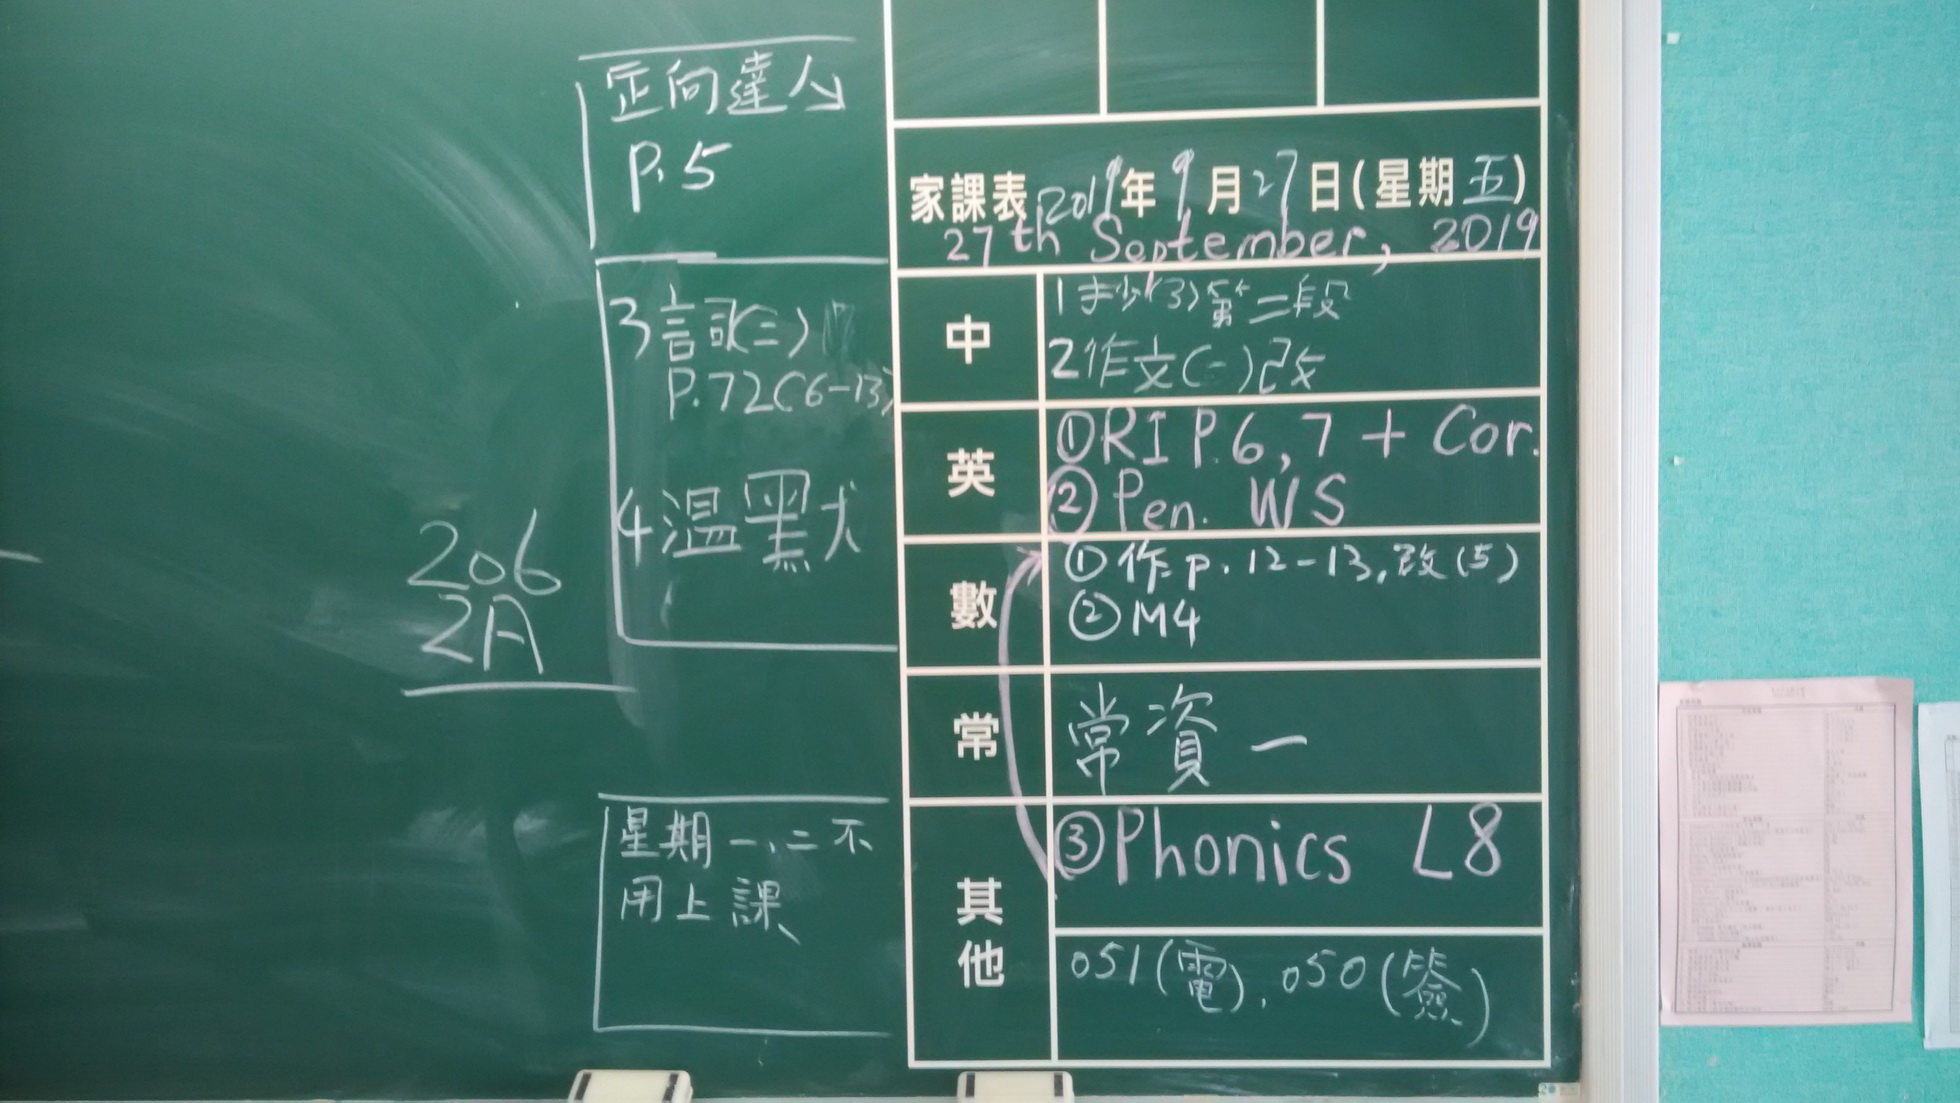 正向達人
P.5
3 詞(二)
P.72(6-13)
4 溫默犬
206
2A
星期一、二不
用上課
家課表 2019年9月27日(星期五)
27th September, 2019
中
1 抄(3)第二段
2 作文(一)改
英
①RI P.6,7 + Cor.
② Pen. WS
數
① 作 p. 12-13, 改(5)
② M4
常
常資一
其他
③Phonics L8
051(電), 050(簽)